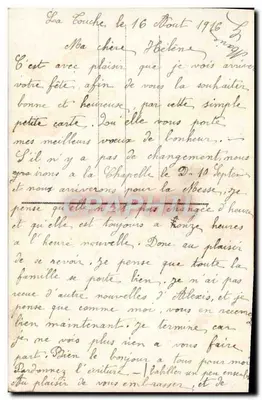 La Touche, le 16 Aout 1916
Ma chère Hélène
C'est avec plaisir que je vois arriver
votre fête, afin de vous la souhaiter
bonne et heureuse, par cette simple
petite carte. Qu'elle vous porte
mes meilleurs voeux de bonheur.
S'il n'y a pas de changement, nous
irons à la Chapelle le D. 10 Septem
et nous arriverons pour la Messe. Je
pense qu'elle n'est pas changée d'heure
et qu'elle est toujours à honze heures
à l'heure nouvelle. Donc au plaisir
de se revoir. Je pense que toute la
famille se porte bien. Je n'ai pas
reçue d'autre nouvelles d'Alexis, et je
pense que comme moi, vous en recevez
bien maintenant. Je termine, car
je ne vois plus rien à vous faire
part. Bien le bonjour à tous pour moi
Pardonnez l'écriture. babiller un peu ensemble
Au plaisir de vous embrasser, et de